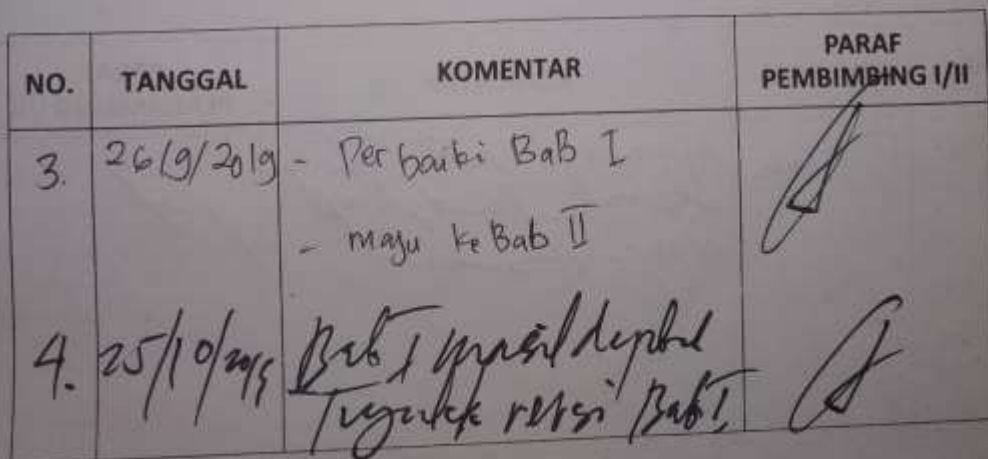 NO. TANGGAL KOMENTAR PARAF PEMBIMBING I/II
3. 26/9/2019 - Perbaiki BaB I
- maju ke Bab II
4. 25/10/2019 Bab I
revsi Bab I